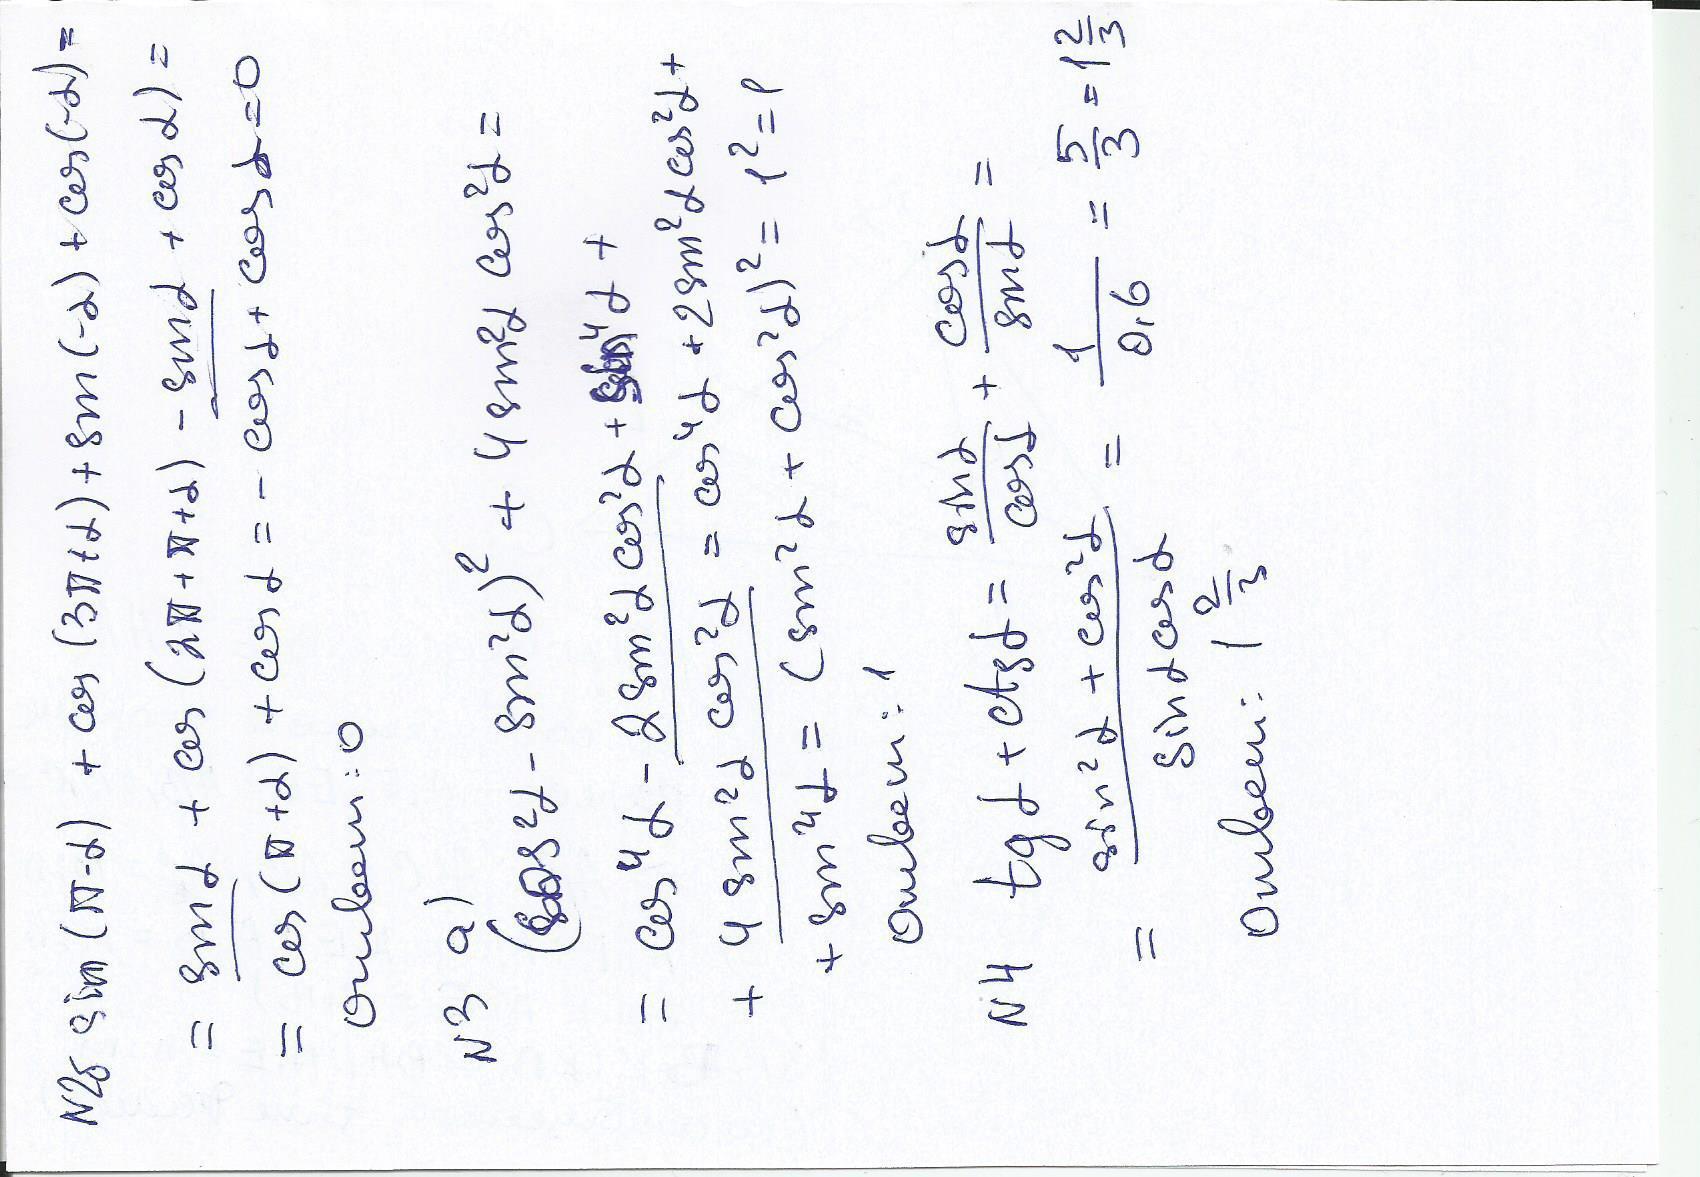 N2б sin(π-α) + cos(3π+α) + sin(-α) + cos(-α) =
= sinα + cos(2π+π+α) - sinα + cosα) =
= cos(π+α) + cosα = - cosα + cosα = 0
Ответ: 0
N3 a)
(cos²α - sin²α)² + 4 sin²α cos²α =
= cos⁴α - 2 sin²α cos²α + sin⁴α +
+ 4 sin²α cos²α = cos⁴α + 2 sin²α cos²α +
+ sin⁴α = (sin²α + cos²α)² = 1² = 1
Ответ: 1
N4 tgα + ctgα = sinα/cosα + cosα/sinα =
= sin²α + cos²α/sinα cosα = 1/0,6 = 5/3 = 1 2/3
Ответ: 1 2/3